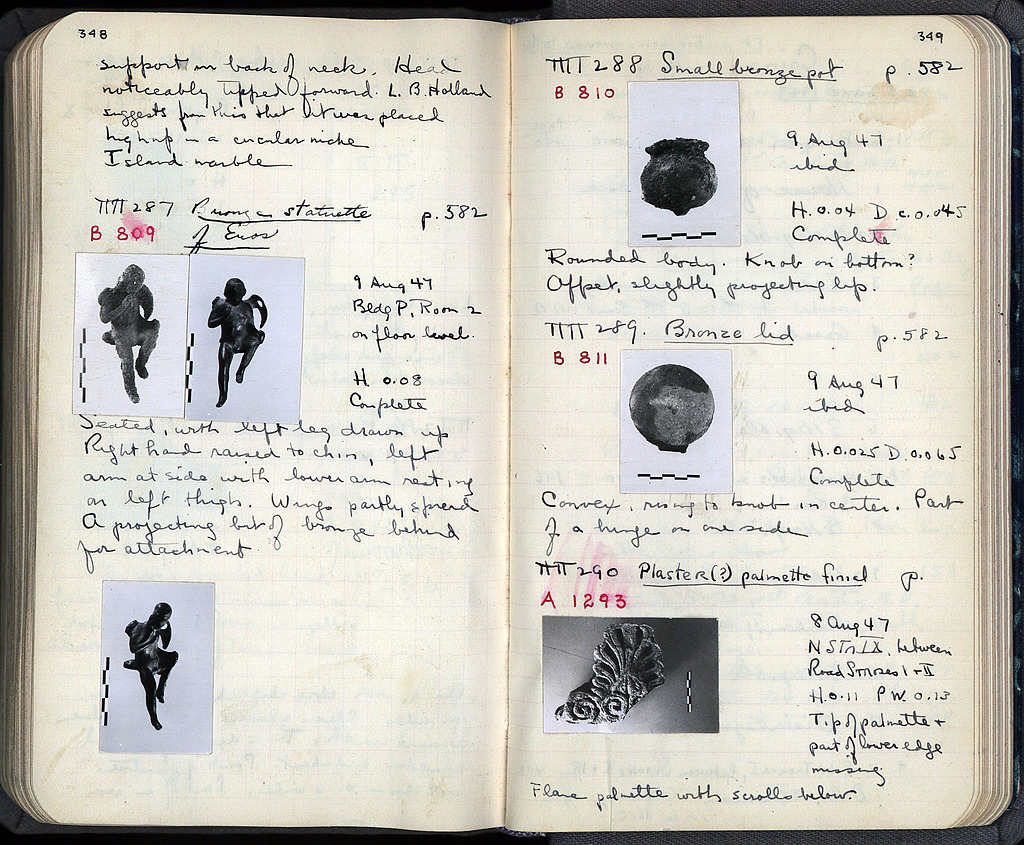 348
support in back of neck. Head
noticeably tipped forward. L. B. Holland
suggests from this that it was placed
high up in a circular niche
Island marble
ΠΠ 287 Bronze statuette p. 582
B 809 of Eros
9 Aug 47
Bldg P, Room 2
on floor level.
H. 0.08
Complete
Seated, with left leg drawn up
Right hand raised to chin, left
arm at side with lower arm resting
on left thigh. Wings partly spread
A projecting bit of bronze behind
for attachment
349
ΠΠ 288 Small bronze pot p. 582
B 810
9 Aug 47
ibid
H. 0.04 D. c. 0.045
Complete
Rounded body. Knob on bottom?
Offset, slightly projecting lip.
ΠΠ 289. Bronze lid p. 582
B 811
9 Aug 47
ibid
H. 0.025 D. 0.065
Complete
Convex, rising to knob in center. Part
of a hinge on one side
ΠΠ 290 Plaster(?) palmette finial p.
A 1293
8 Aug 47
N Stoa IX, between
Road Stroses I + II
H. 0.11 P.W. 0.13
Tip of palmette +
part of lower edge
missing
Flame palmette with scrolls below.